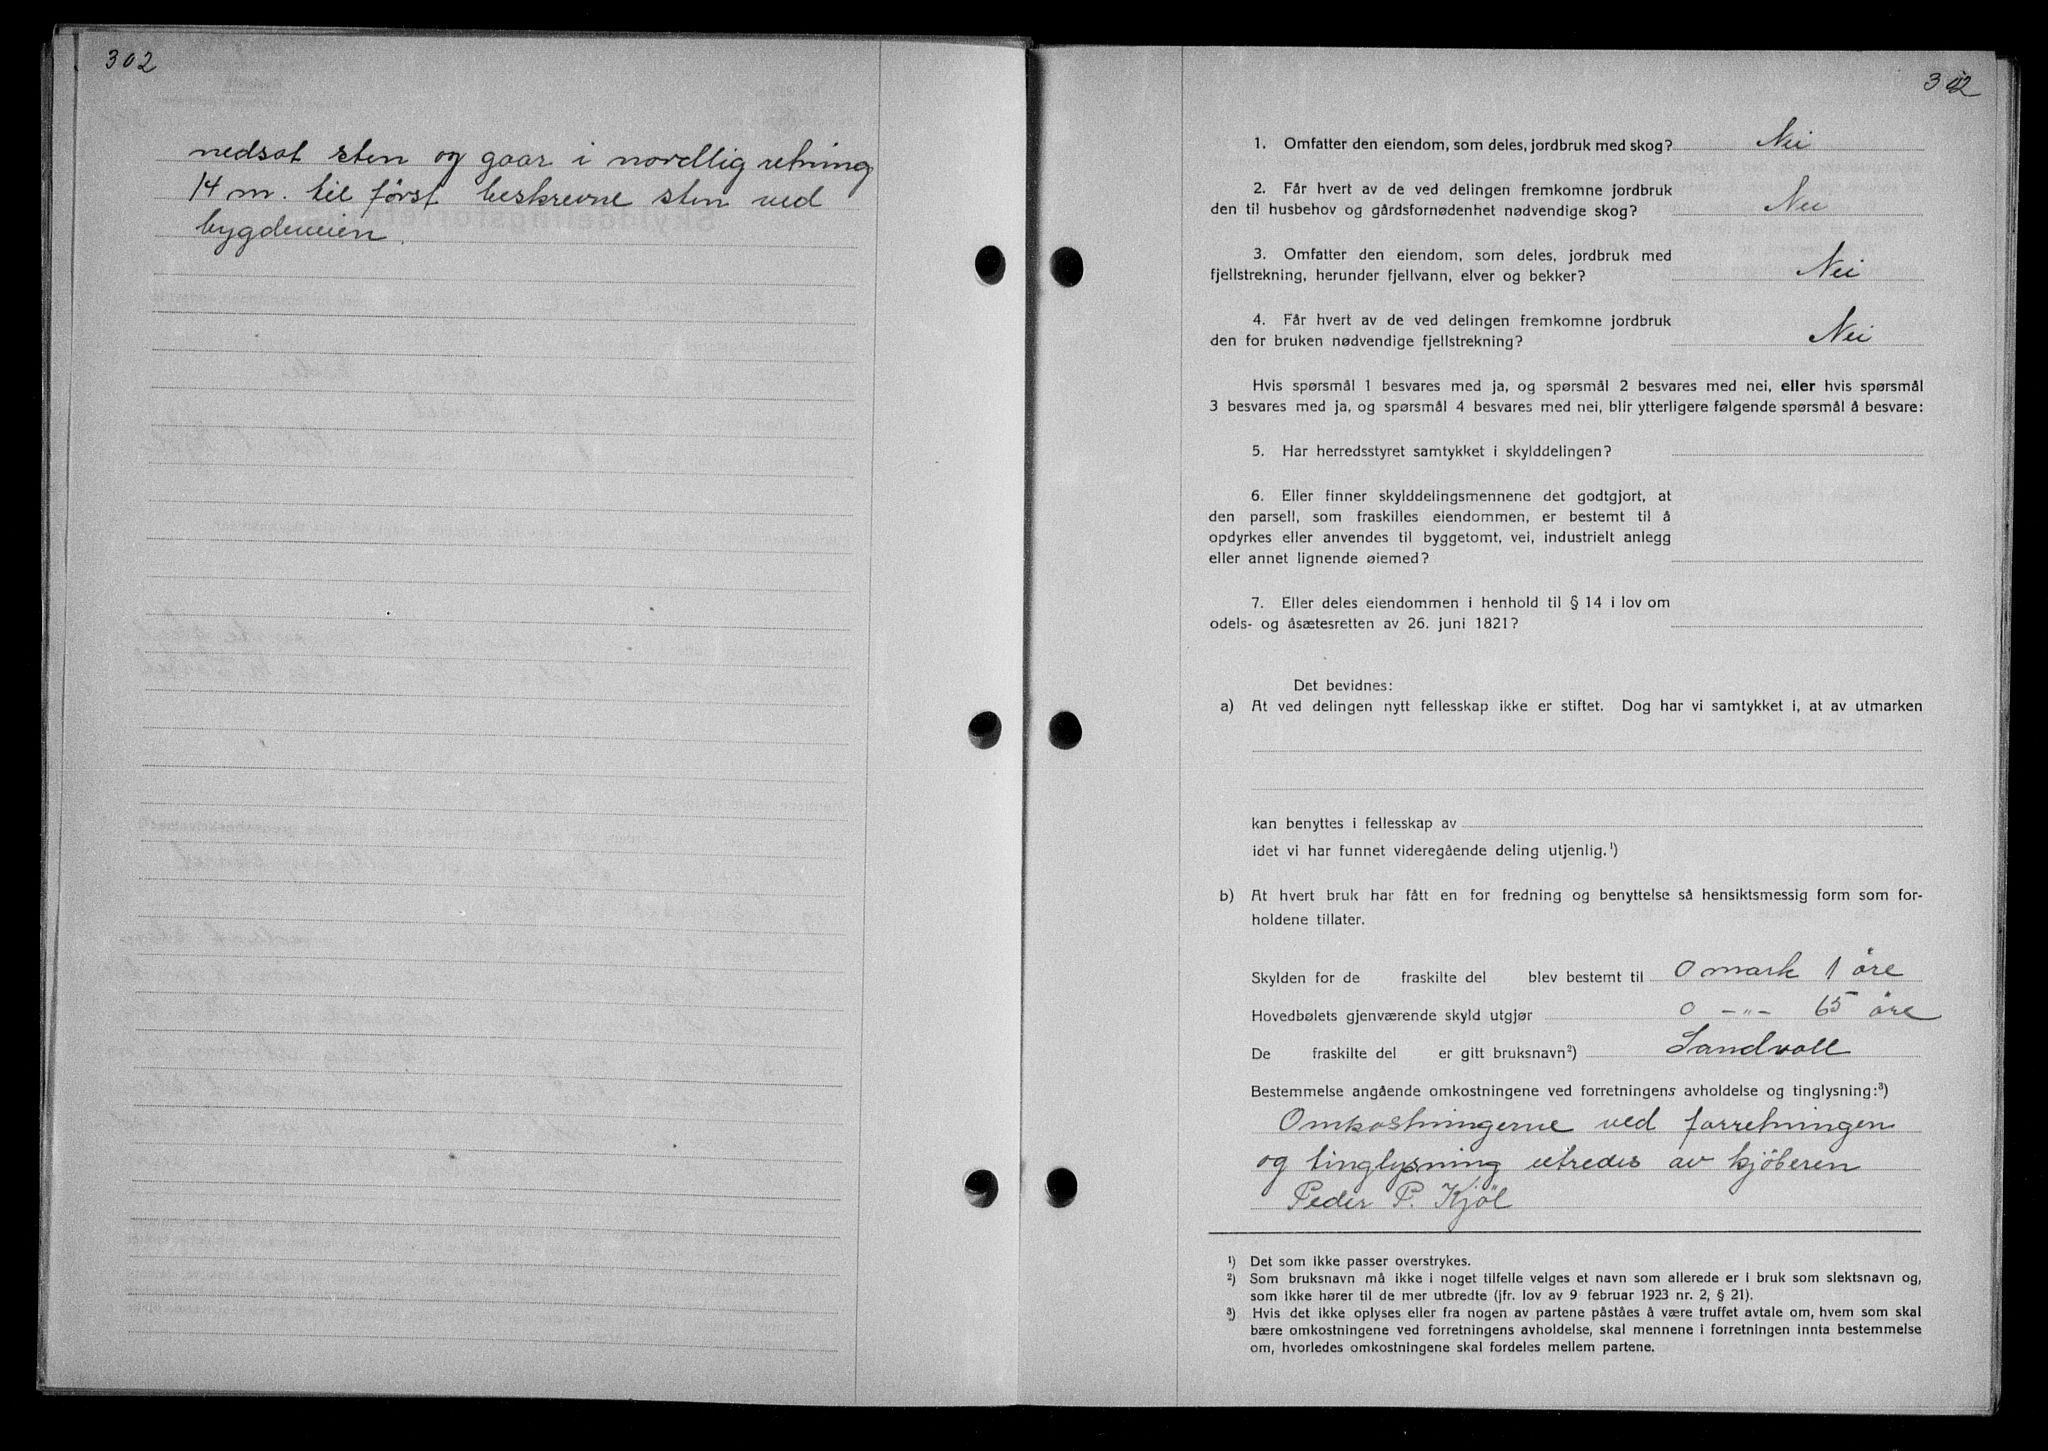 302
nedsat sten og gaar i nordlig retning
14 m. til først beskrevne sten ved
bygdeveien.
302
1. Omfatter den eiendom, som deles, jordbruk med skog? Nei
2. Får hvert av de ved delingen fremkomne jordbruk
den til husbehov og gårdsfornødenhet nødvendige skog? Nei
3. Omfatter den eiendom, som deles, jordbruk med
fjellstrekning, herunder fjellvann, elver og bekker? Nei
4. Får hvert av de ved delingen fremkomne jordbruk
den for bruken nødvendige fjellstrekning? Nei
Hvis spørsmål 1 besvares med ja, og spørsmål 2 besvares med nei, eller hvis spørsmål
3 besvares med ja, og spørsmål 4 besvares med nei, blir ytterligere følgende spørsmål å besvare:
5. Har herredsstyret samtykket i skylddelingen?
6. Eller finner skylddelingsmennene det godtgjort, at
den parsell, som fraskilles eiendommen, er bestemt til å
opdyrkes eller anvendes til byggetomt, vei, industrielt anlegg
eller annet lignende øiemed?
7. Eller deles eiendommen i henhold til § 14 i lov om
odels- og åsætesretten av 26. juni 1821?
Det bevidnes:
a) At ved delingen nytt fellesskap ikke er stiftet. Dog har vi samtykket i, at av utmarken
kan benyttes i fellesskap av
idet vi har funnet videregående deling utjenlig.¹)
b) At hvert bruk har fått en for fredning og benyttelse så hensiktsmessig form som for-
holdene tillater.
Skylden for de fraskilte del blev bestemt til 0 mark 1 öre
Hovedbølets gjenværende skyld utgjør 0 -"- 65 öre
De fraskilte del er gitt bruksnavn²) Sandvoll
Bestemmelse angående omkostningene ved forretningens avholdelse og tinglysning:³)
Omkostningerne ved forretningen
og tinglysning utredes av kjöberen
Peder P. Kjöl
¹) Det som ikke passer overstrykes.
²) Som bruksnavn må ikke i noget tilfelle velges et navn som allerede er i bruk som slektsnavn og,
som ikke hører til de mer utbredte (jfr. lov av 9 februar 1923 nr. 2, § 21).
³) Hvis det ikke oplyses eller fra nogen av partene påståes å være truffet avtale om, hvem som skal
bære omkostningene ved forretningens avholdelse, skal mennene i forretningen innta bestemmelse
om, hvorledes omkostningene skal fordeles mellem partene.